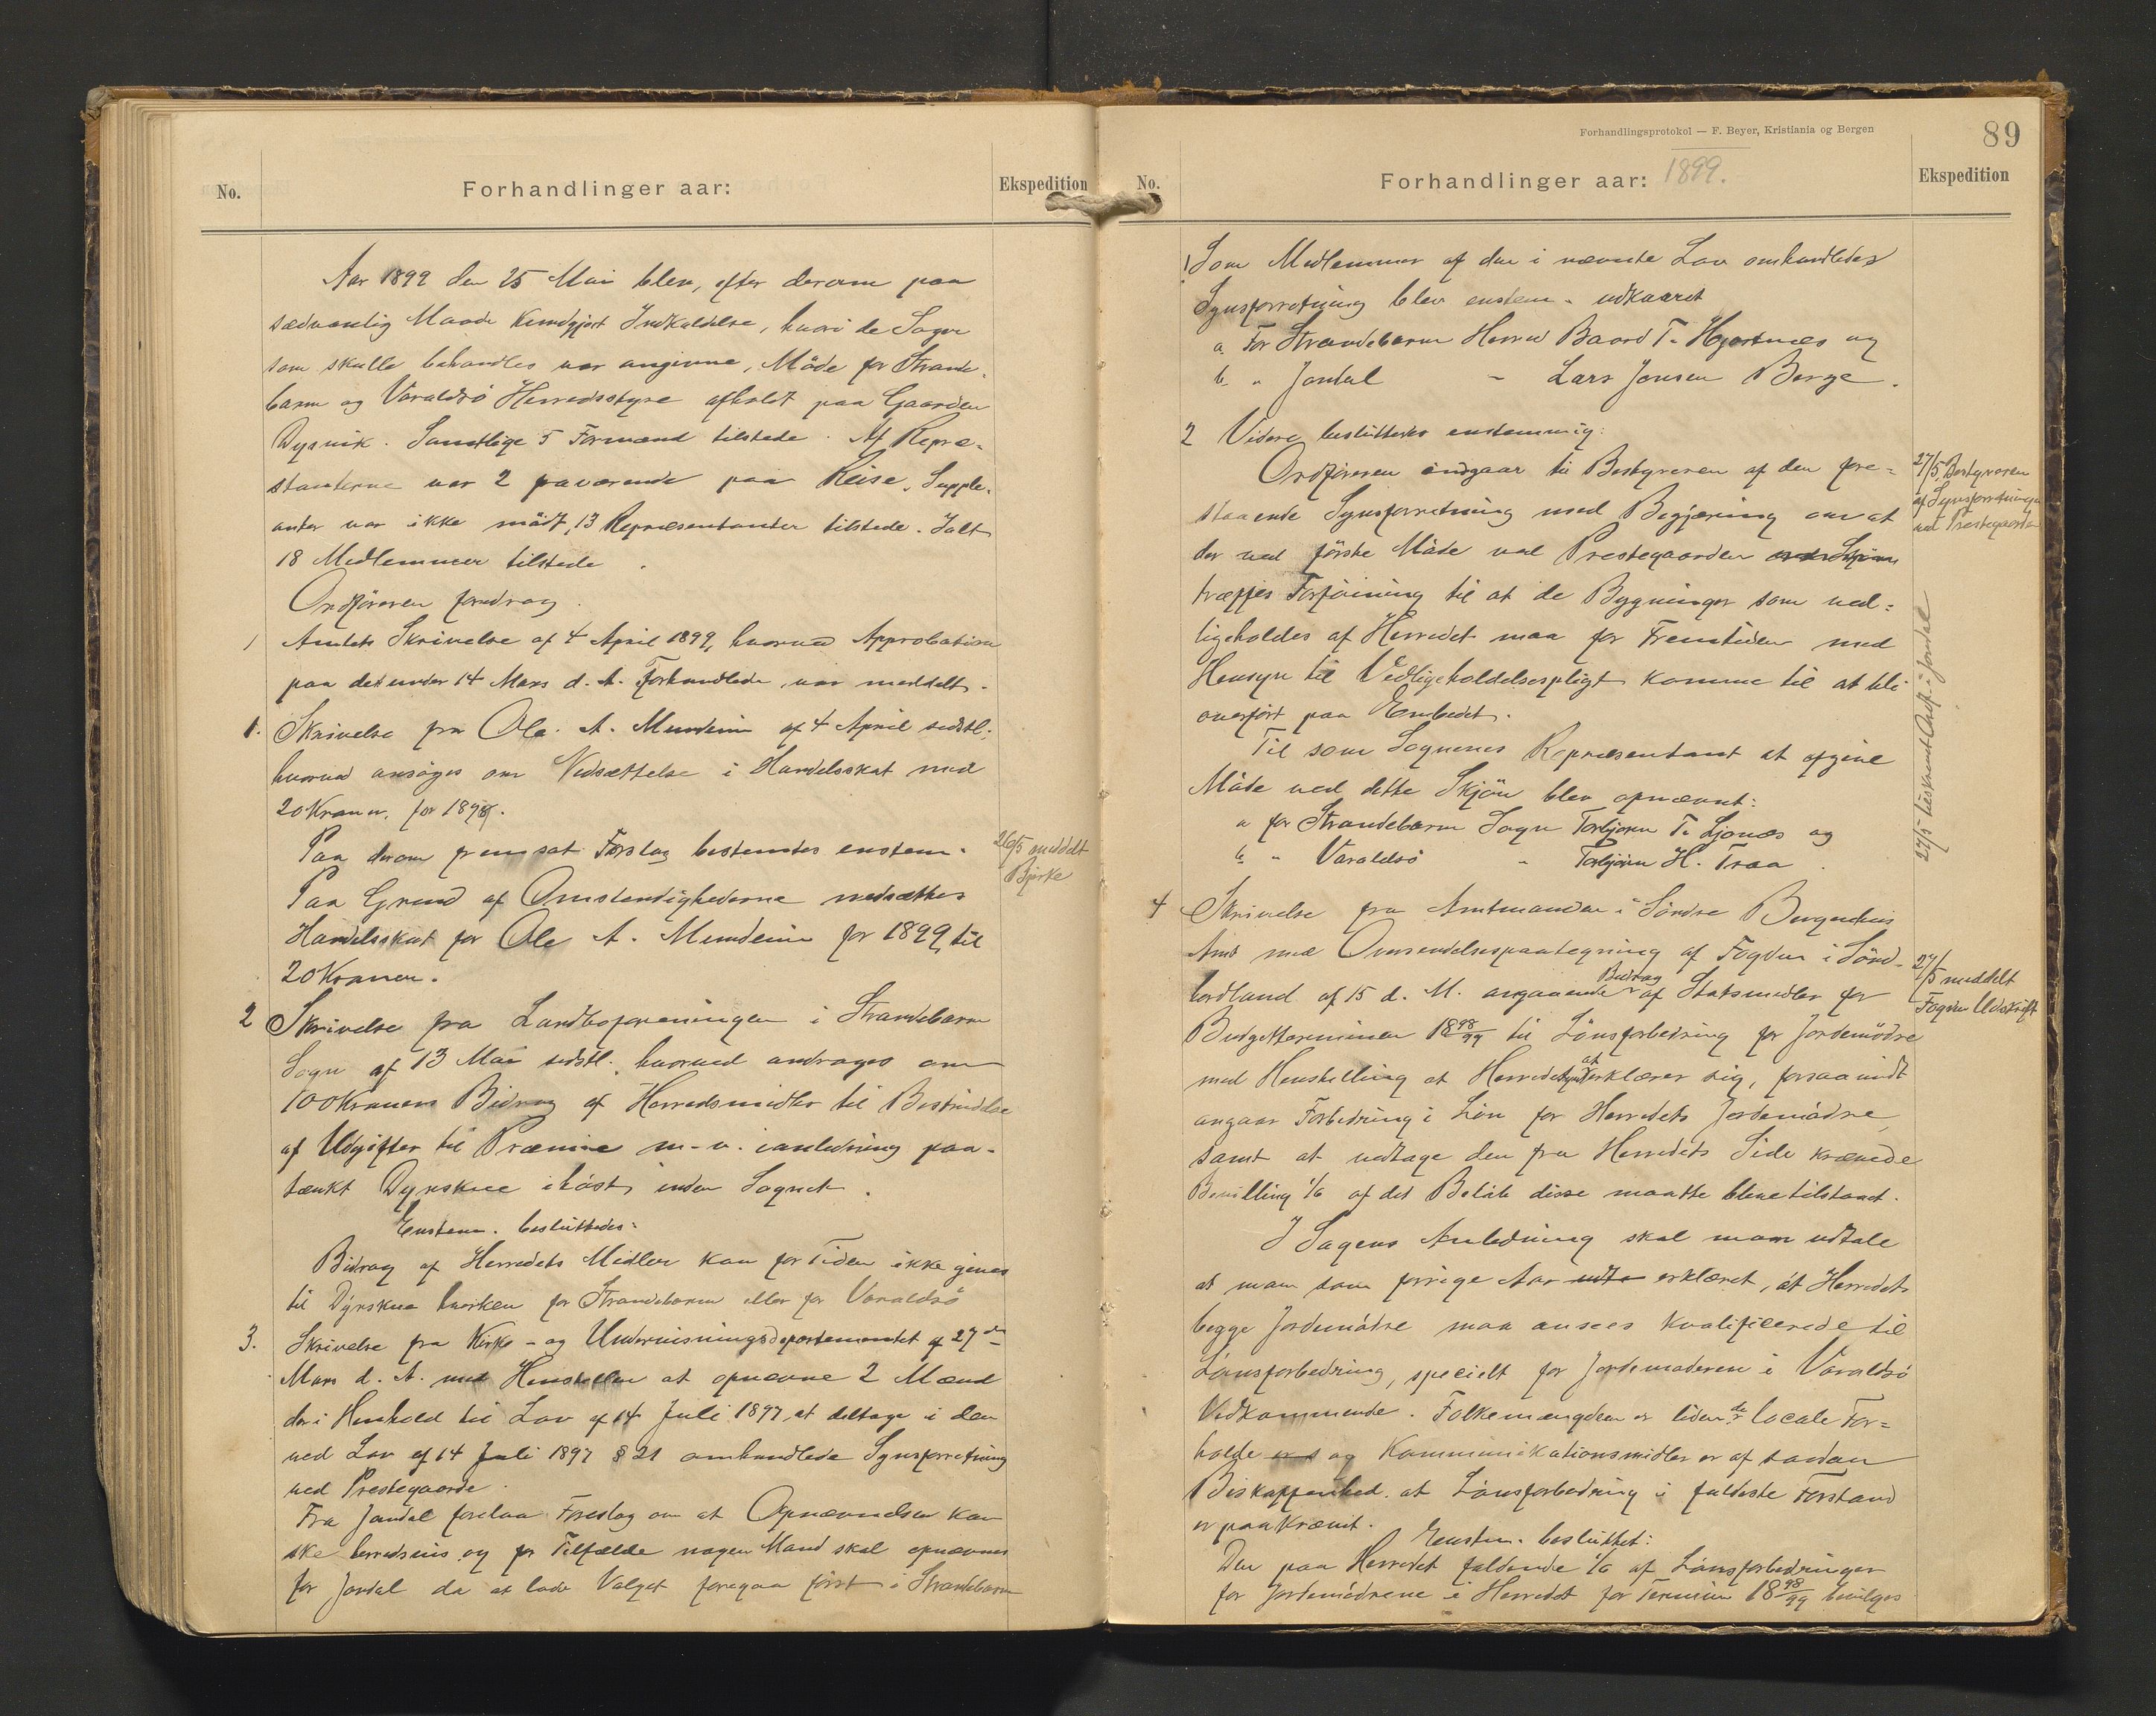 No.
Forhandlinger aar:
Ekspedition
Aar 1899 den 25 Mai blev, efter derom paa
sædvanlig Maade kundgjort Indkaldelse, hvori de Sager
som skulle behandles var angivne, Möde for Strande-
barm og Varaldsö Herredsstyre afholdt paa Gaarden
Dysvik. Samtlige 5 Formænd tilstede. Af Repræ-
stanterne var 2 fraværende paa Reise, Supple-
anter var ikke mödt, 13 Repræsentanter tilstede. Ialt
18 Medlemmer tilstede.
Ordföreren foredrog.
1 Amtets Skrivelse af 4 April 1899, hvorved Approbation
paa det under 14 Mars d. A. Forhandlede var meddelt.
1. Skrivelse fra Ole A. Mundeim af 4 April sidstl.
hvorved ansöges om Nedsættelse i Handelsskat med
20 Kroner, for 1898.
Paa derom fremsat Forslag bestemtes enstem.
Paa Grund af Omstendighederne nedsættes
Handelsskat for Ole A. Mundeim for 1899 til
20 Kroner.
26/5 meddelt
Bjerke
2 Skrivelse fra Landboforeningen i Strandebarm
Sogn af 13 Mai sidstl. hvorved andrages om
100 Kroners Bidrag af Herredsmidler til Bestridelse
af Udgifter til Præmie m. v. i anledning paa-
tænkt Dyrskue ihöst inden Sognet.
Enstem. besluttedes:
Bidrag af Herredets Midler kan for Tiden ikke gives
til Dyrskue hverken for Strandebarm eller for Varaldsö
3. Skrivelse fra Kirke- og Undervisningsdepartementet af 27de
Mars d. A. med Henstillen at opnævne 2 Mænd
der i Henhold til Lov af 14 Juli 1897, at deltage i den
ved Lov af 14 Juli 1897 § 21 omhandlede Synsforretning
ved Prestegaarde.
Fra Jondal forelaa Foreslag om at Opnævnelsen kan
ske herredsvis og for Tilfælde nogen Mand skal opnævnes
for Jondal da at lade Valget foregaa först i Strandebarm
Forhandlingsprotokol — F. Beyer, Kristiania og Bergen
89
No.
Forhandlinger aar: 1899.
Ekspedition
1 Som Medlemmer af den i nævnte Lov omhandledes
Synsforretning blev enstem. udkaaret
a. For Strandebarm Herred Baard T. Hjartnæs og
b. " Jondal - Lars Jonsen Berge.
2 Videre besluttedes enstemmig:
Ordföreren indgaar til Bestyreren af den fore-
staaende Synsforretning med Begjæring om at
der ved förste Möde ved Prestegaarden
træffes Forföining til at de Bygninger som ved-
ligeholdes af Herredet maa for Fremtiden med
Hensyn til Vedligeholdelsespligt komme til at bli
overfört paa Embedet.
27/5 Bestyreren
af Synsforretningen
ved Prestegaarden
Til som Sognenes Repræsentant at afgive
Möde ved dette Skjön blev opnævnt:
a for Strandebarm Sogn Torbjørn T. Ljonæs og
b " Varaldsö - Torbjørn H. Traa.
27/5 tilskrevet Ordf. i Jondal
4 Skrivelse fra Amtmanden i Söndre Bergenhus
Amt med Omsendelsespaategning af Fogden i Sönd-
hordland af 15 d. M. angaaende Bidrag af Statsmidler for
Budgetterminen 18 98/99 til Lönsforbedring for Jordemödre
med Henstilling at Herredstyret at erklærer sig, forsaavidt
angaar Forbedring i Lön for Herredets Jordemödre,
samt at vedtage den fra Herredets Side krævede
Bevilling 1/6 af det Beløb disse maatte blive tilstaaet.
27/5 meddelt
Fogden Udskrift
I Sagens Anledning skal man udtale
at man som forrige Aar udta erklæret, at Herredets
begge Jordemödre maa ansees kvalificerede til
Lönsforbedring, specielt for Jordemoderen i Varaldsö
Vedkommende. Folkemængden er liden de locale For-
holde er s og Kommunikationsmidler er af saadan
Beskaffenhed at Lönsforbedring i fuldeste Forstand
er paakrævet.
Enstem. besluttet:
Den paa Herredet faldende 1/6 af Lönsforbedringen
for Jordemödrene i Herredet for Terminen 18 98/99 bevilges